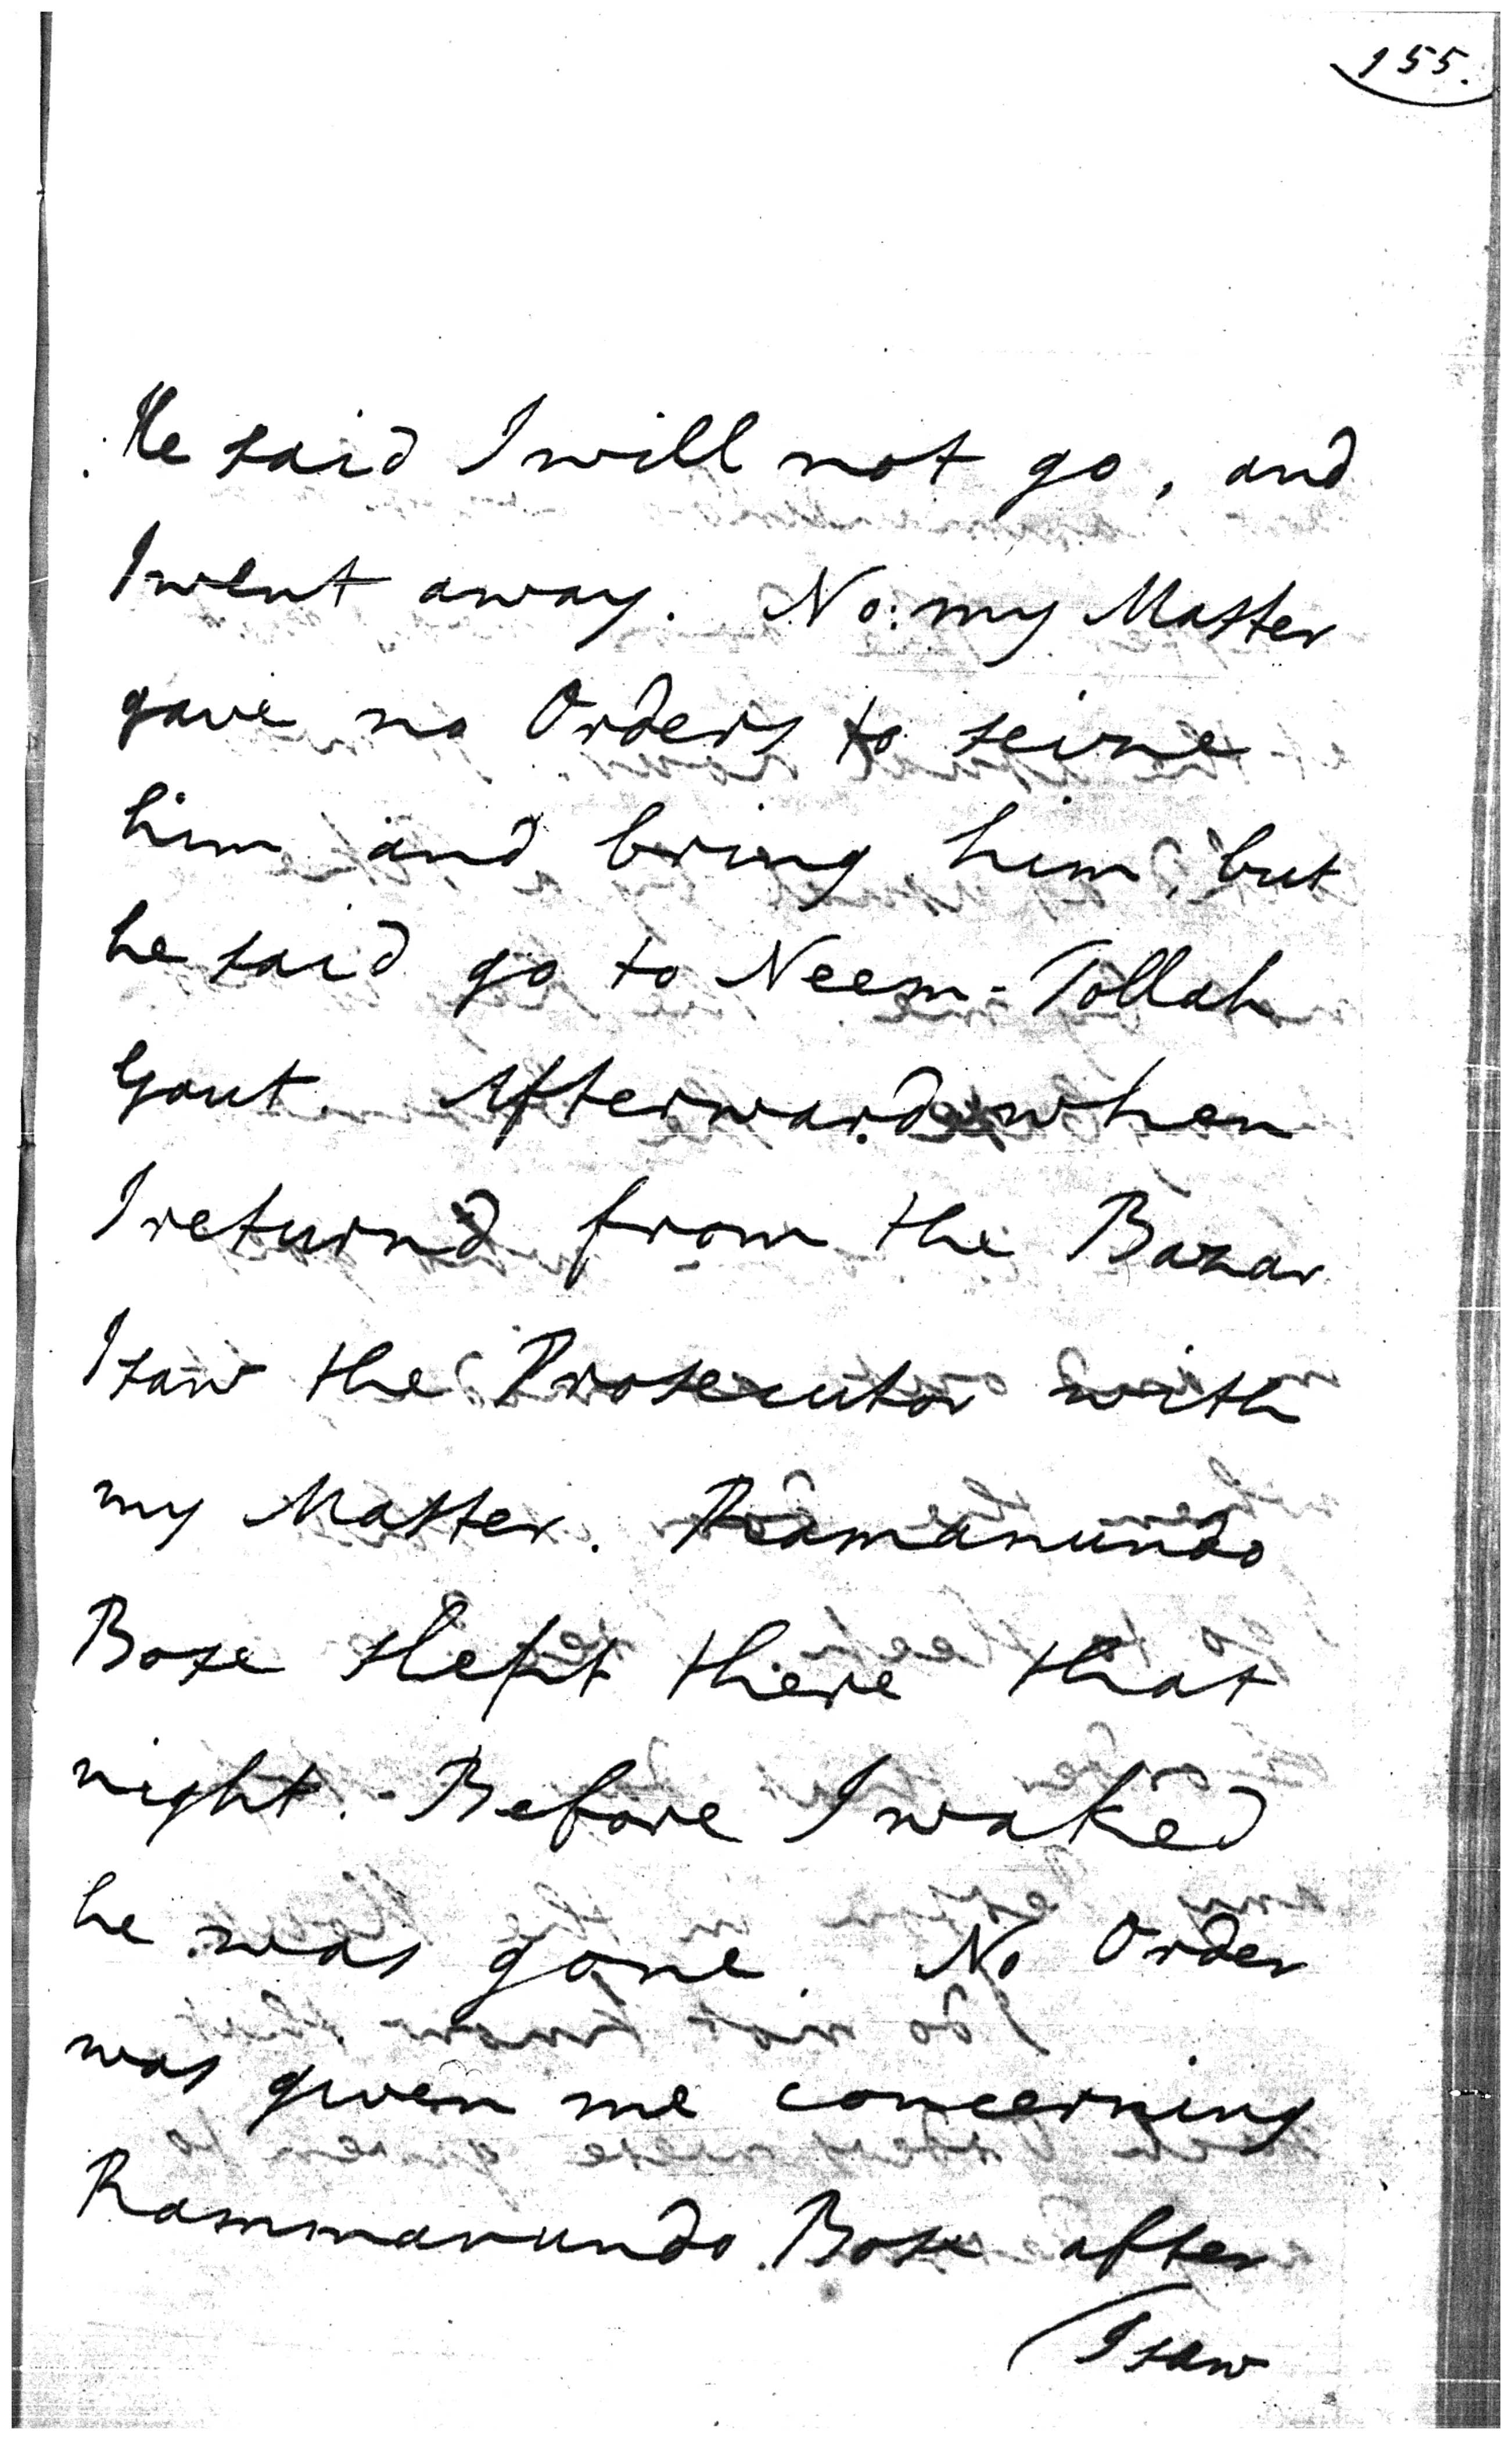 155.
He said I will not go, and
I went away. No: my Master
gave no Orders to seize
him and bring him, but
he said go to Neem-Tollah
Gaut. Afterwards when
I return'd from the Bazar
I saw the Prosecutor with
my Master. Ramanundo
Bose slept there that
night. - Before I waked
he was gone. No Order
was given me concerning
Rammanundo Bose after
I saw